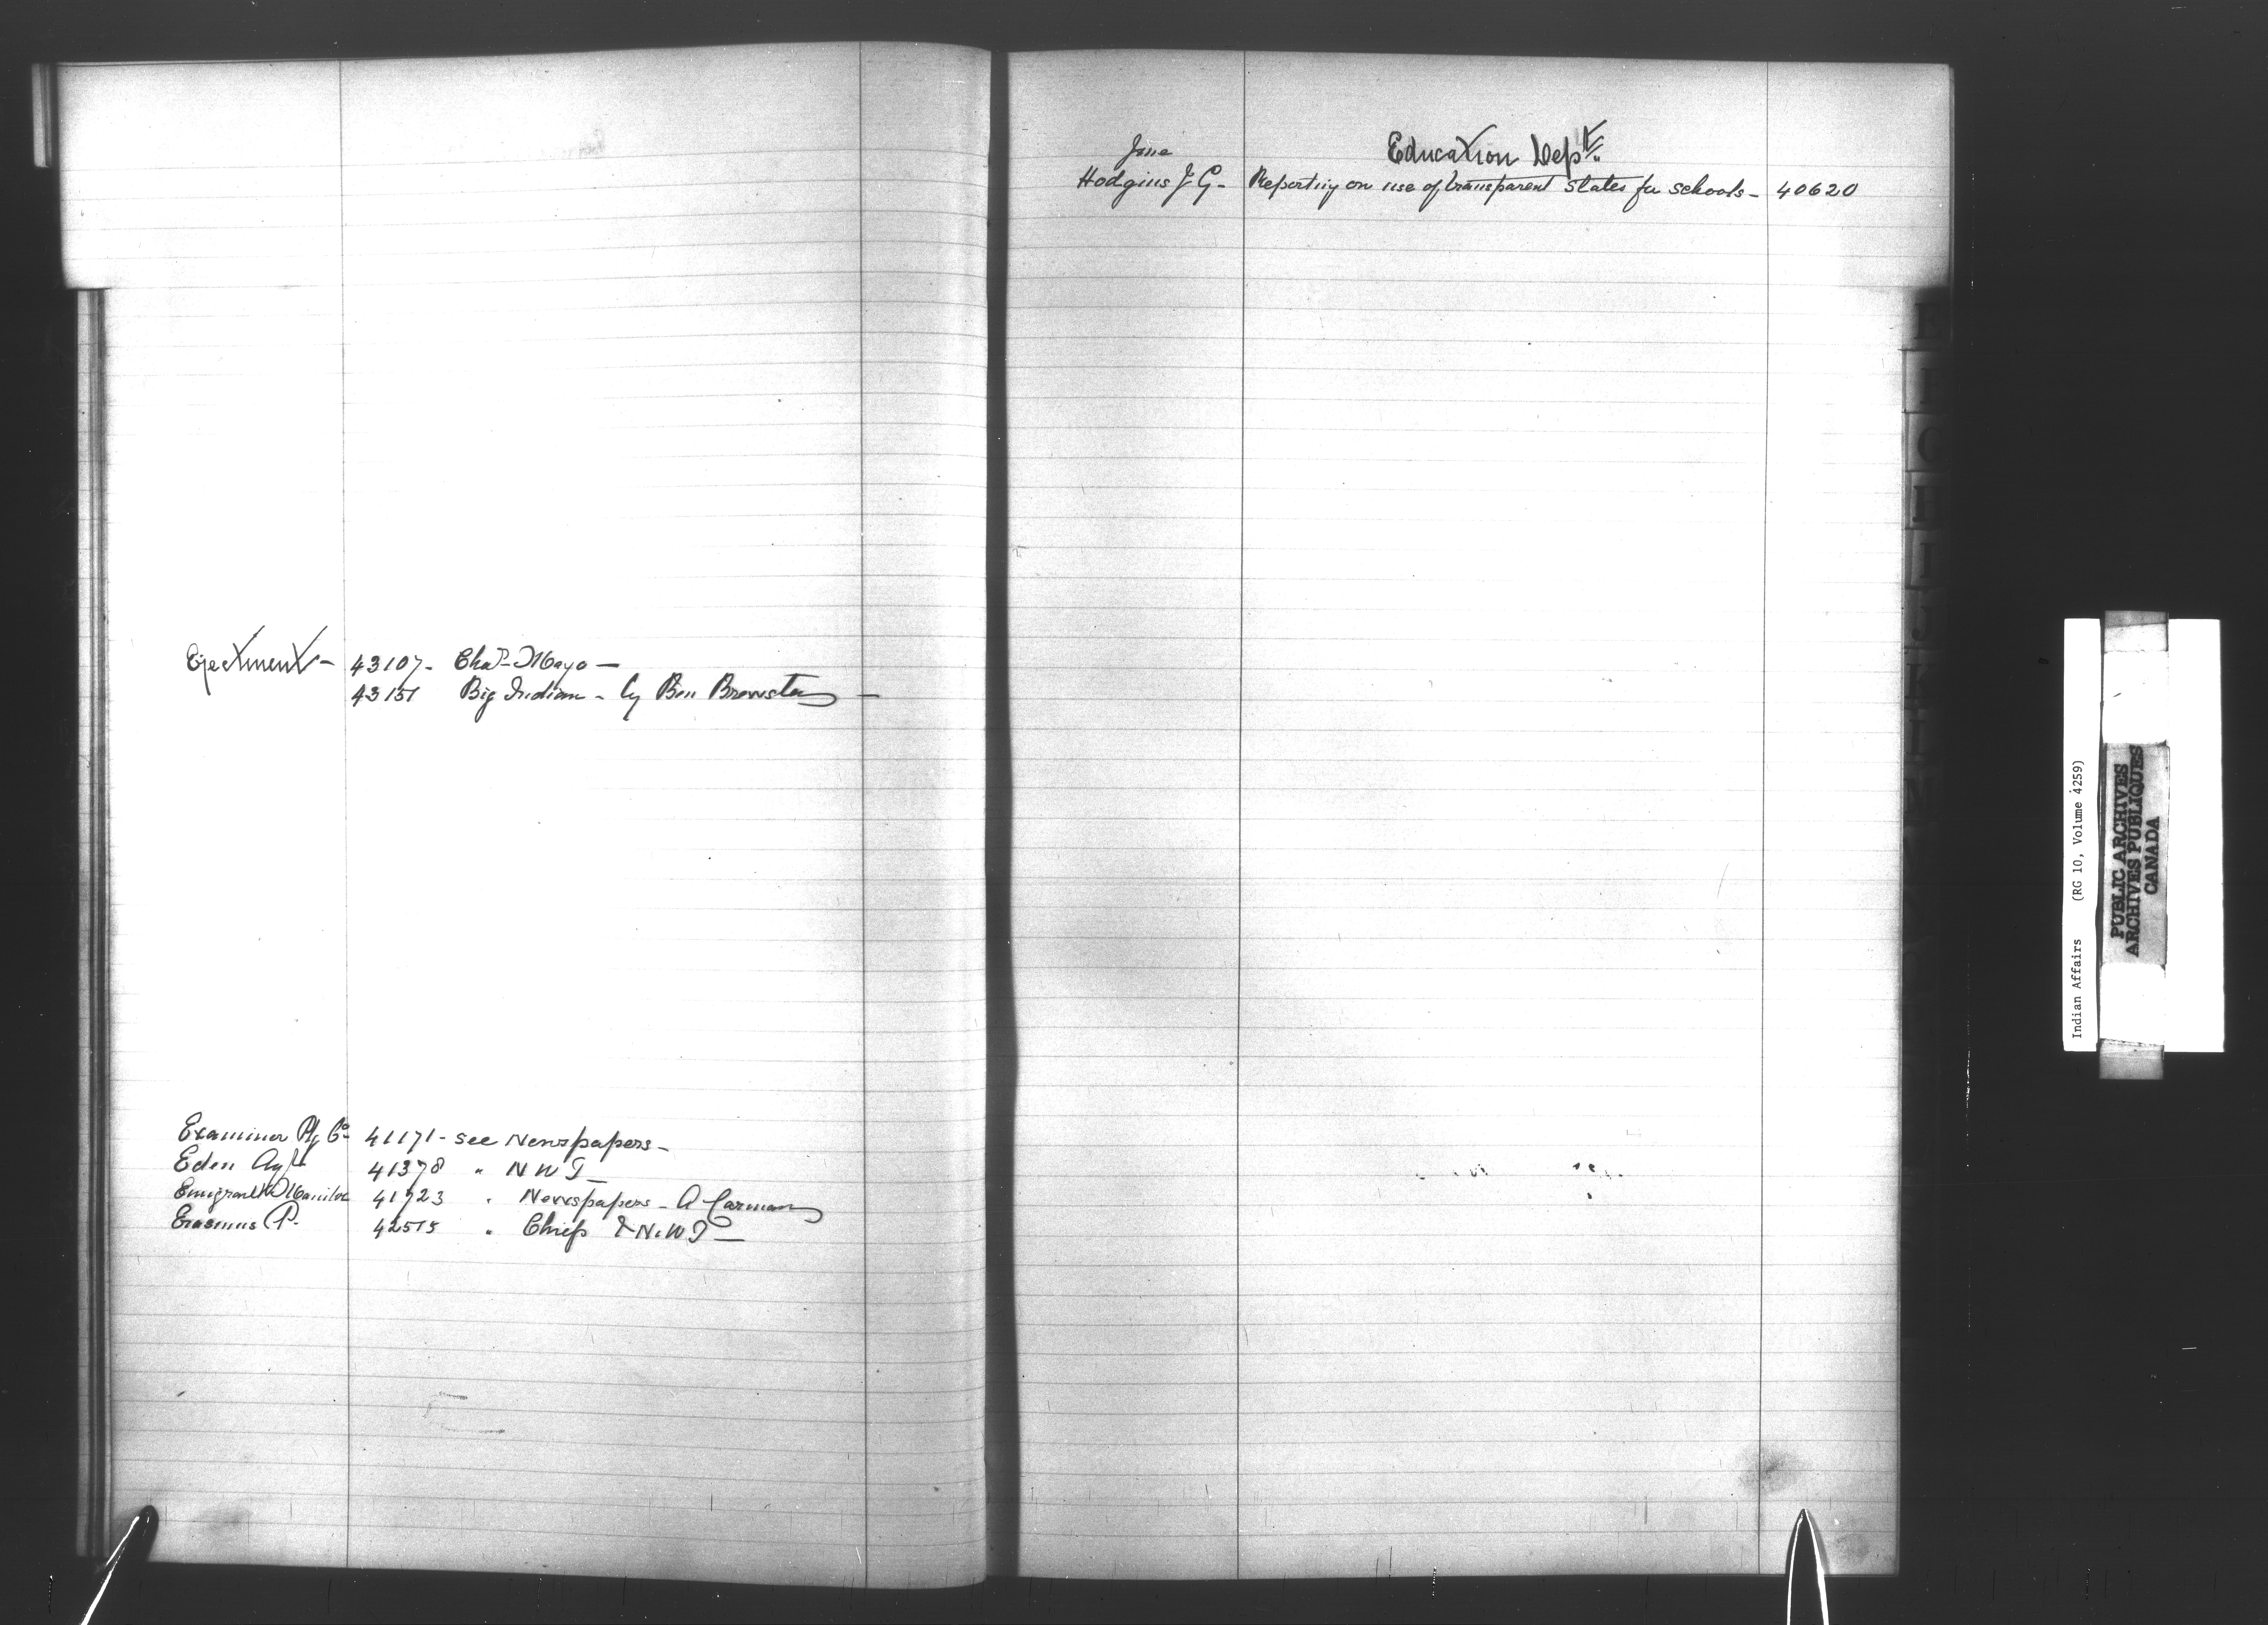 Ejectment - 43107 - Chas Mayo -
43151 Big Indian - by Ben Brewster -
Examiner Ptg Co 41171 - see Newspapers -
Eden Agt 41378 " N W T -
Emigrant Manitoba 41723 " Newspapers - A Carman
Erasmus P. 42515 " Chiefs & N.W.T -
June
Education Dept.
Hodgins J G - Reporting on use of transparent slates for schools - 40620
Indian Affairs (RG 10, Volume 4259)
PUBLIC ARCHIVES
ARCHIVES PUBLIQUES
CANADA